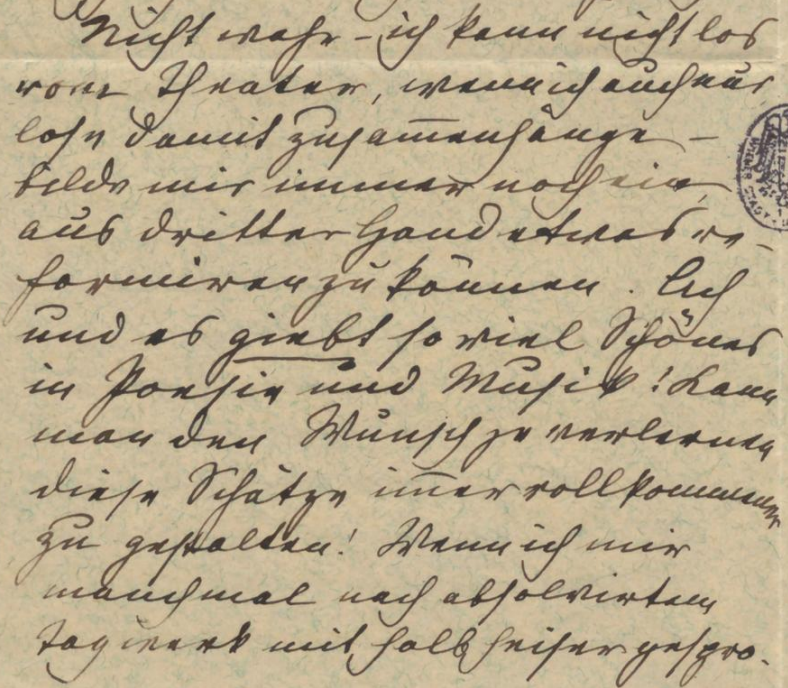 Nicht wahr – ich kann nicht los
vom Theater, wenn ich auch nur
lose damit zusam̅enhänge –
bilde mir immer noch ein,
aus dritter Hand etwas re-
formiren zu können. Ach
und es giebt so viel Schönes
in Poesie und Musik! Kann
man den Wunsch je verlernen
diese Schätze im̅er vollkommener
zu gestalten! Wenn ich mir
manchmal nach absolvirtem
Tagwerk mit halb heiser gespro-